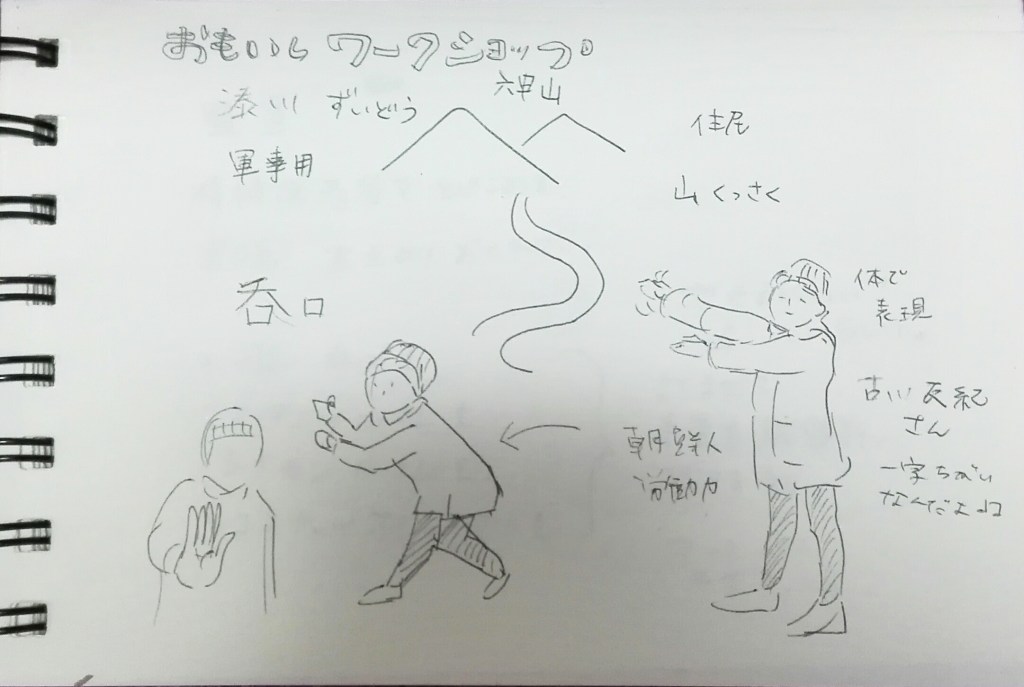 おもいしワークショップ
六甲山
湊川 ずいどう
住民
軍事用
山くっさく
呑口
体で
表現
古川友紀
さん
朝鮮人
労働力
一字ちがい
なんだよね